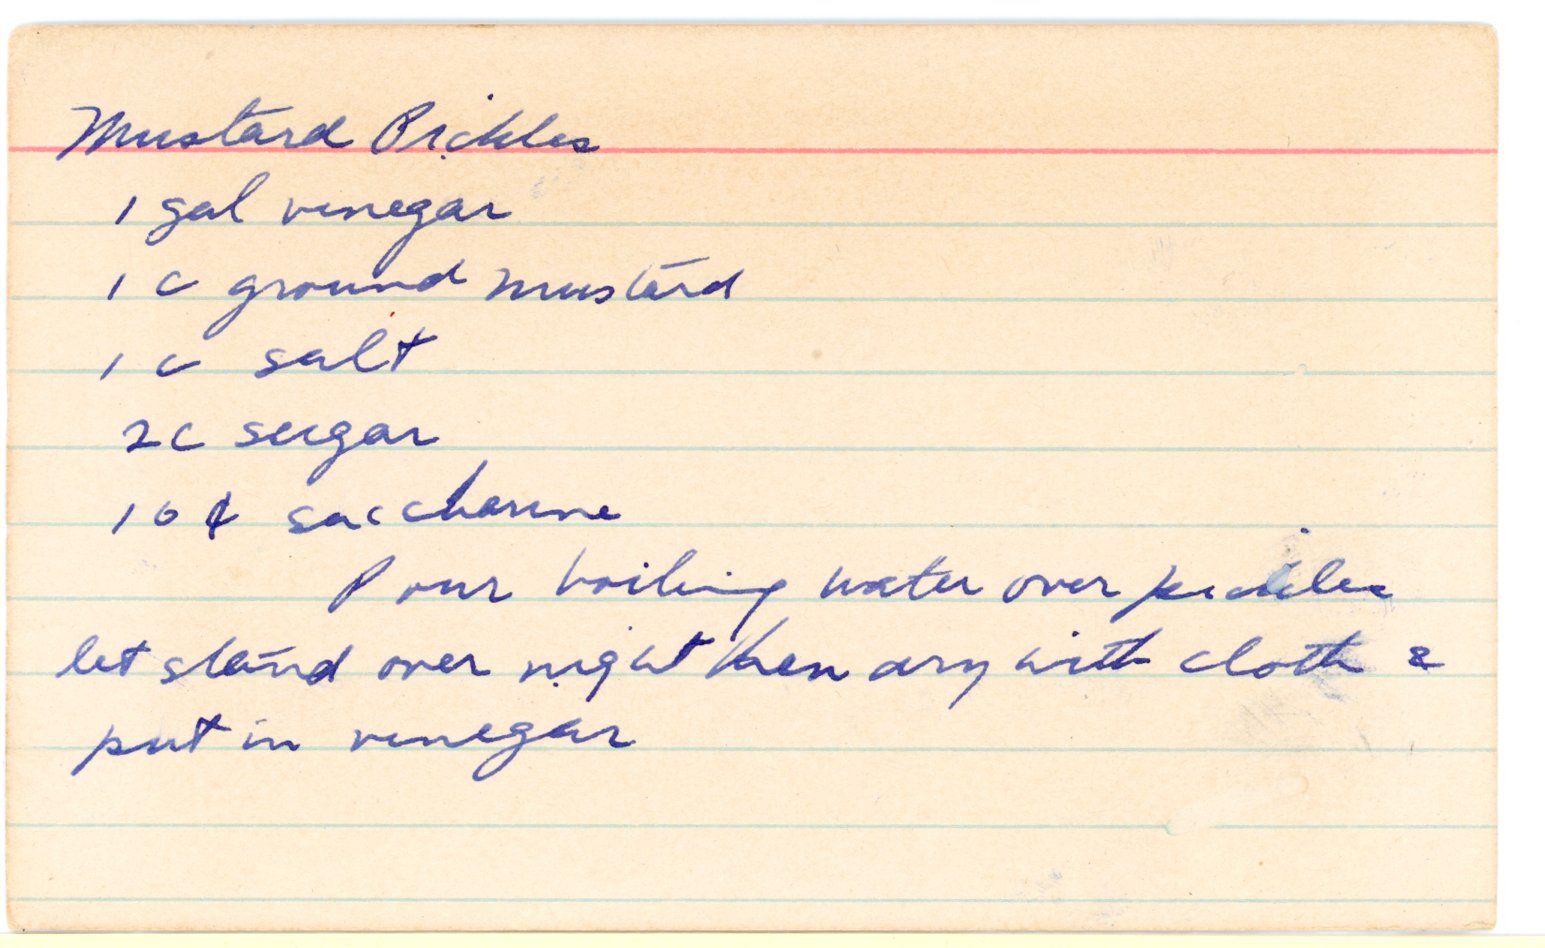 Mustard Pickles
1 gal vinegar
1 c ground mustard
1 c salt
2c sugar
10¢ saccharine
Pour boiling water over pickles
let stand over night then dry with cloth &
put in vinegar